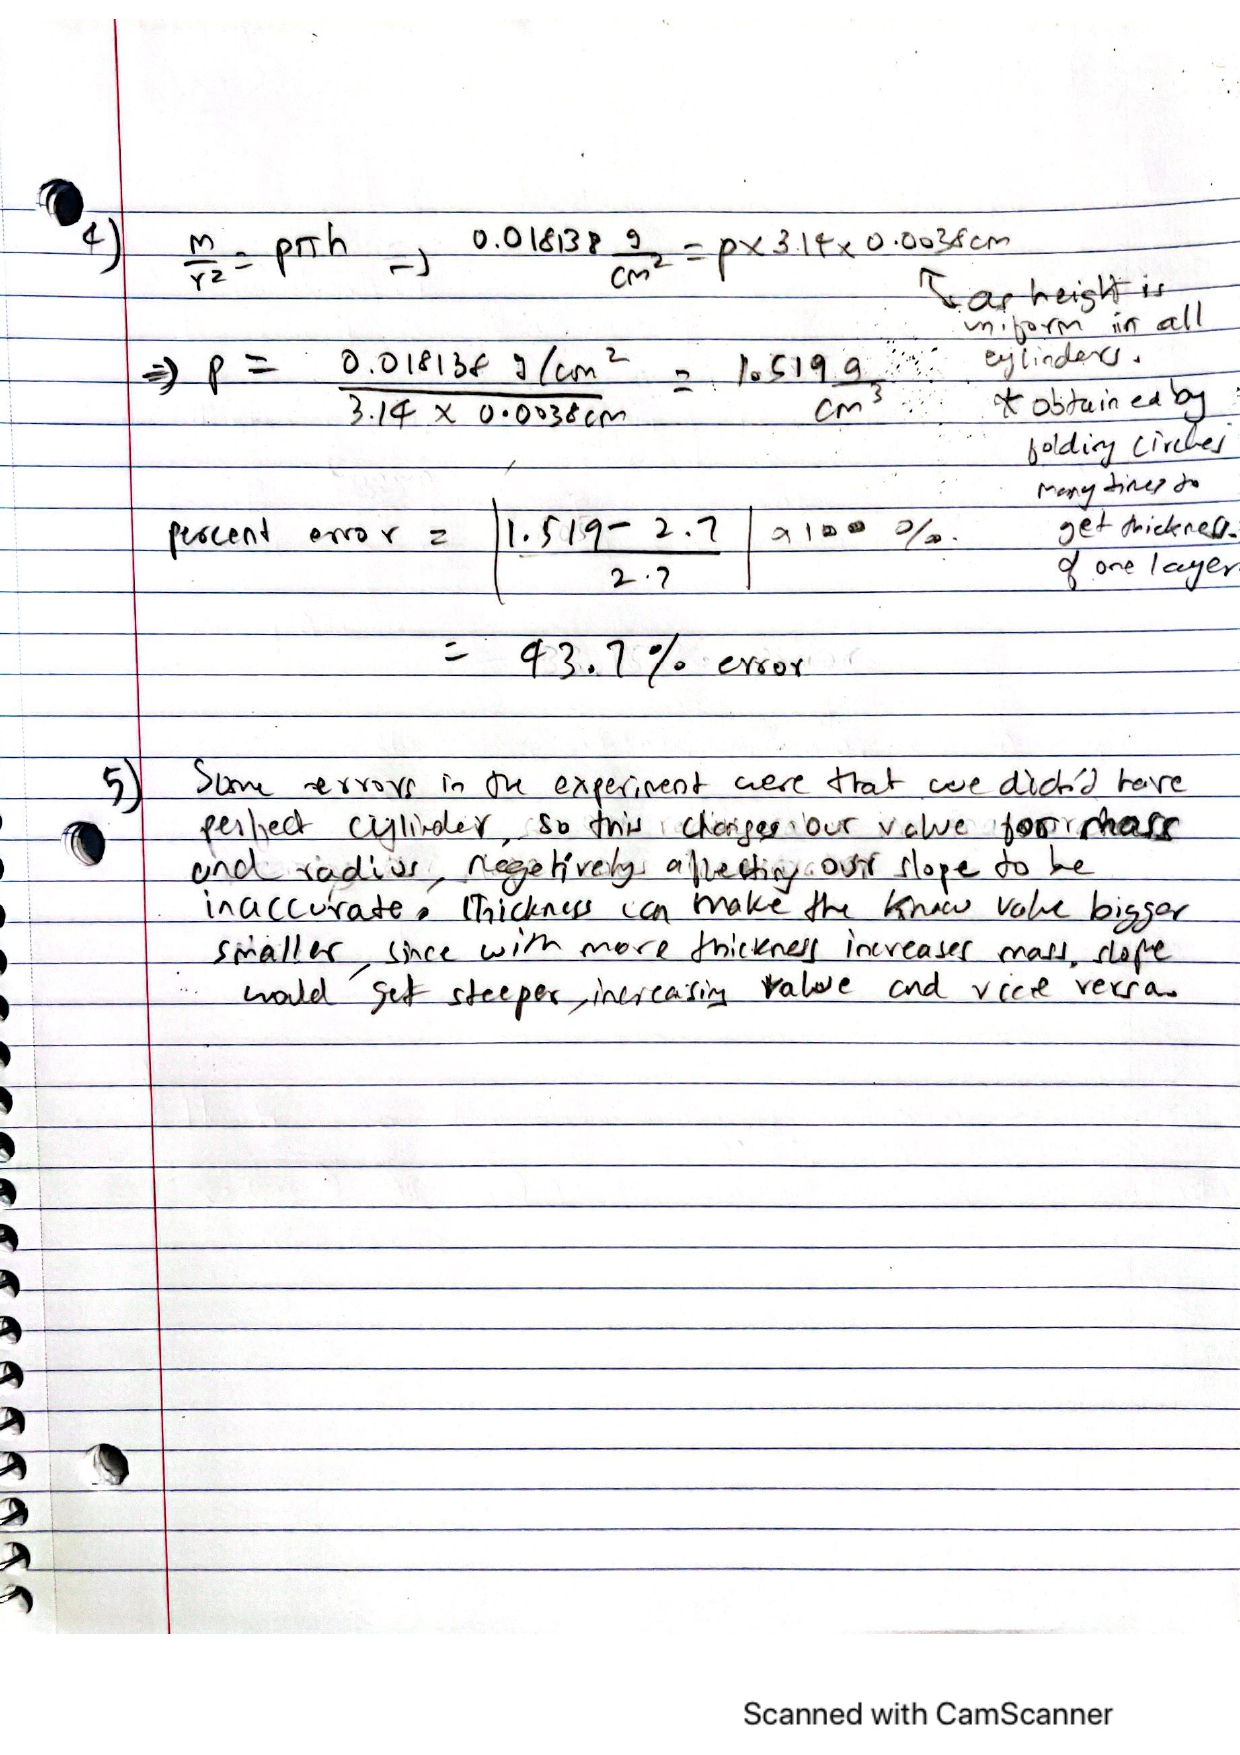 4) m/r2 = ρπh => 0.018138 g/cm2 = ρ x 3.14 x 0.0038cm
as height is
uniform in all
cylinders.
=> ρ = 0.018138 g/cm2 / 3.14 x 0.0038cm = 1.519 g/cm3
* obtained by
folding circles
many times to
get thickness
of one layer
percent error = |1.519 - 2.7 / 2.7| x 100 %.
= 43.7% error
5) Some errors in the experiment were that we didn't have
perfect cylinder, so this changes our value for mass
and radius, negetively affecting our slope to be
inaccurate. Thickness can make the know value bigger
smaller, since with more thickness increases mass, slope
would get steeper, increasing value and vice versa.
Scanned with CamScanner